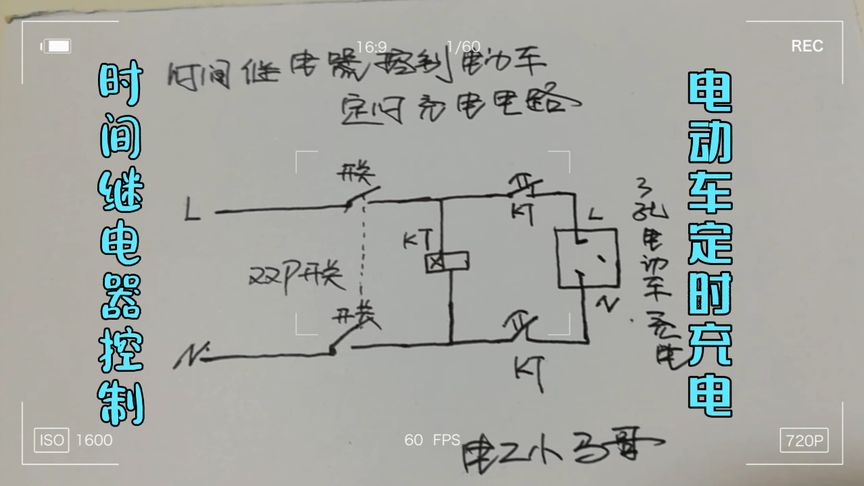 16:9
1/60
REC
时间继电器控制电动车
定时充电电路
时间继电器控制
电动车定时充电
开关
L
KT
KT
L
3孔电动车充电
22P开关
N
开关
N
KT
ISO 1600
60 FPS
720P
电工小马哥